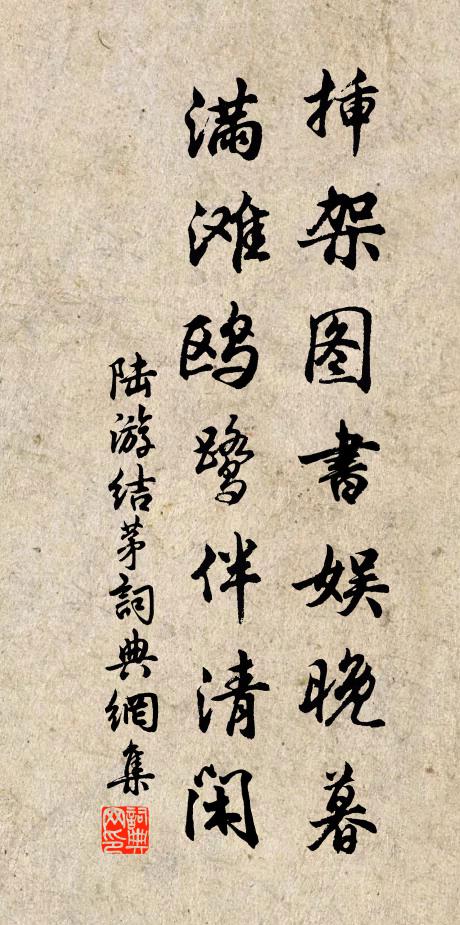 挿架图書娱晚暮
满滩鸥鹭伴清闲
陆游结茅詞典網集
詞典网印